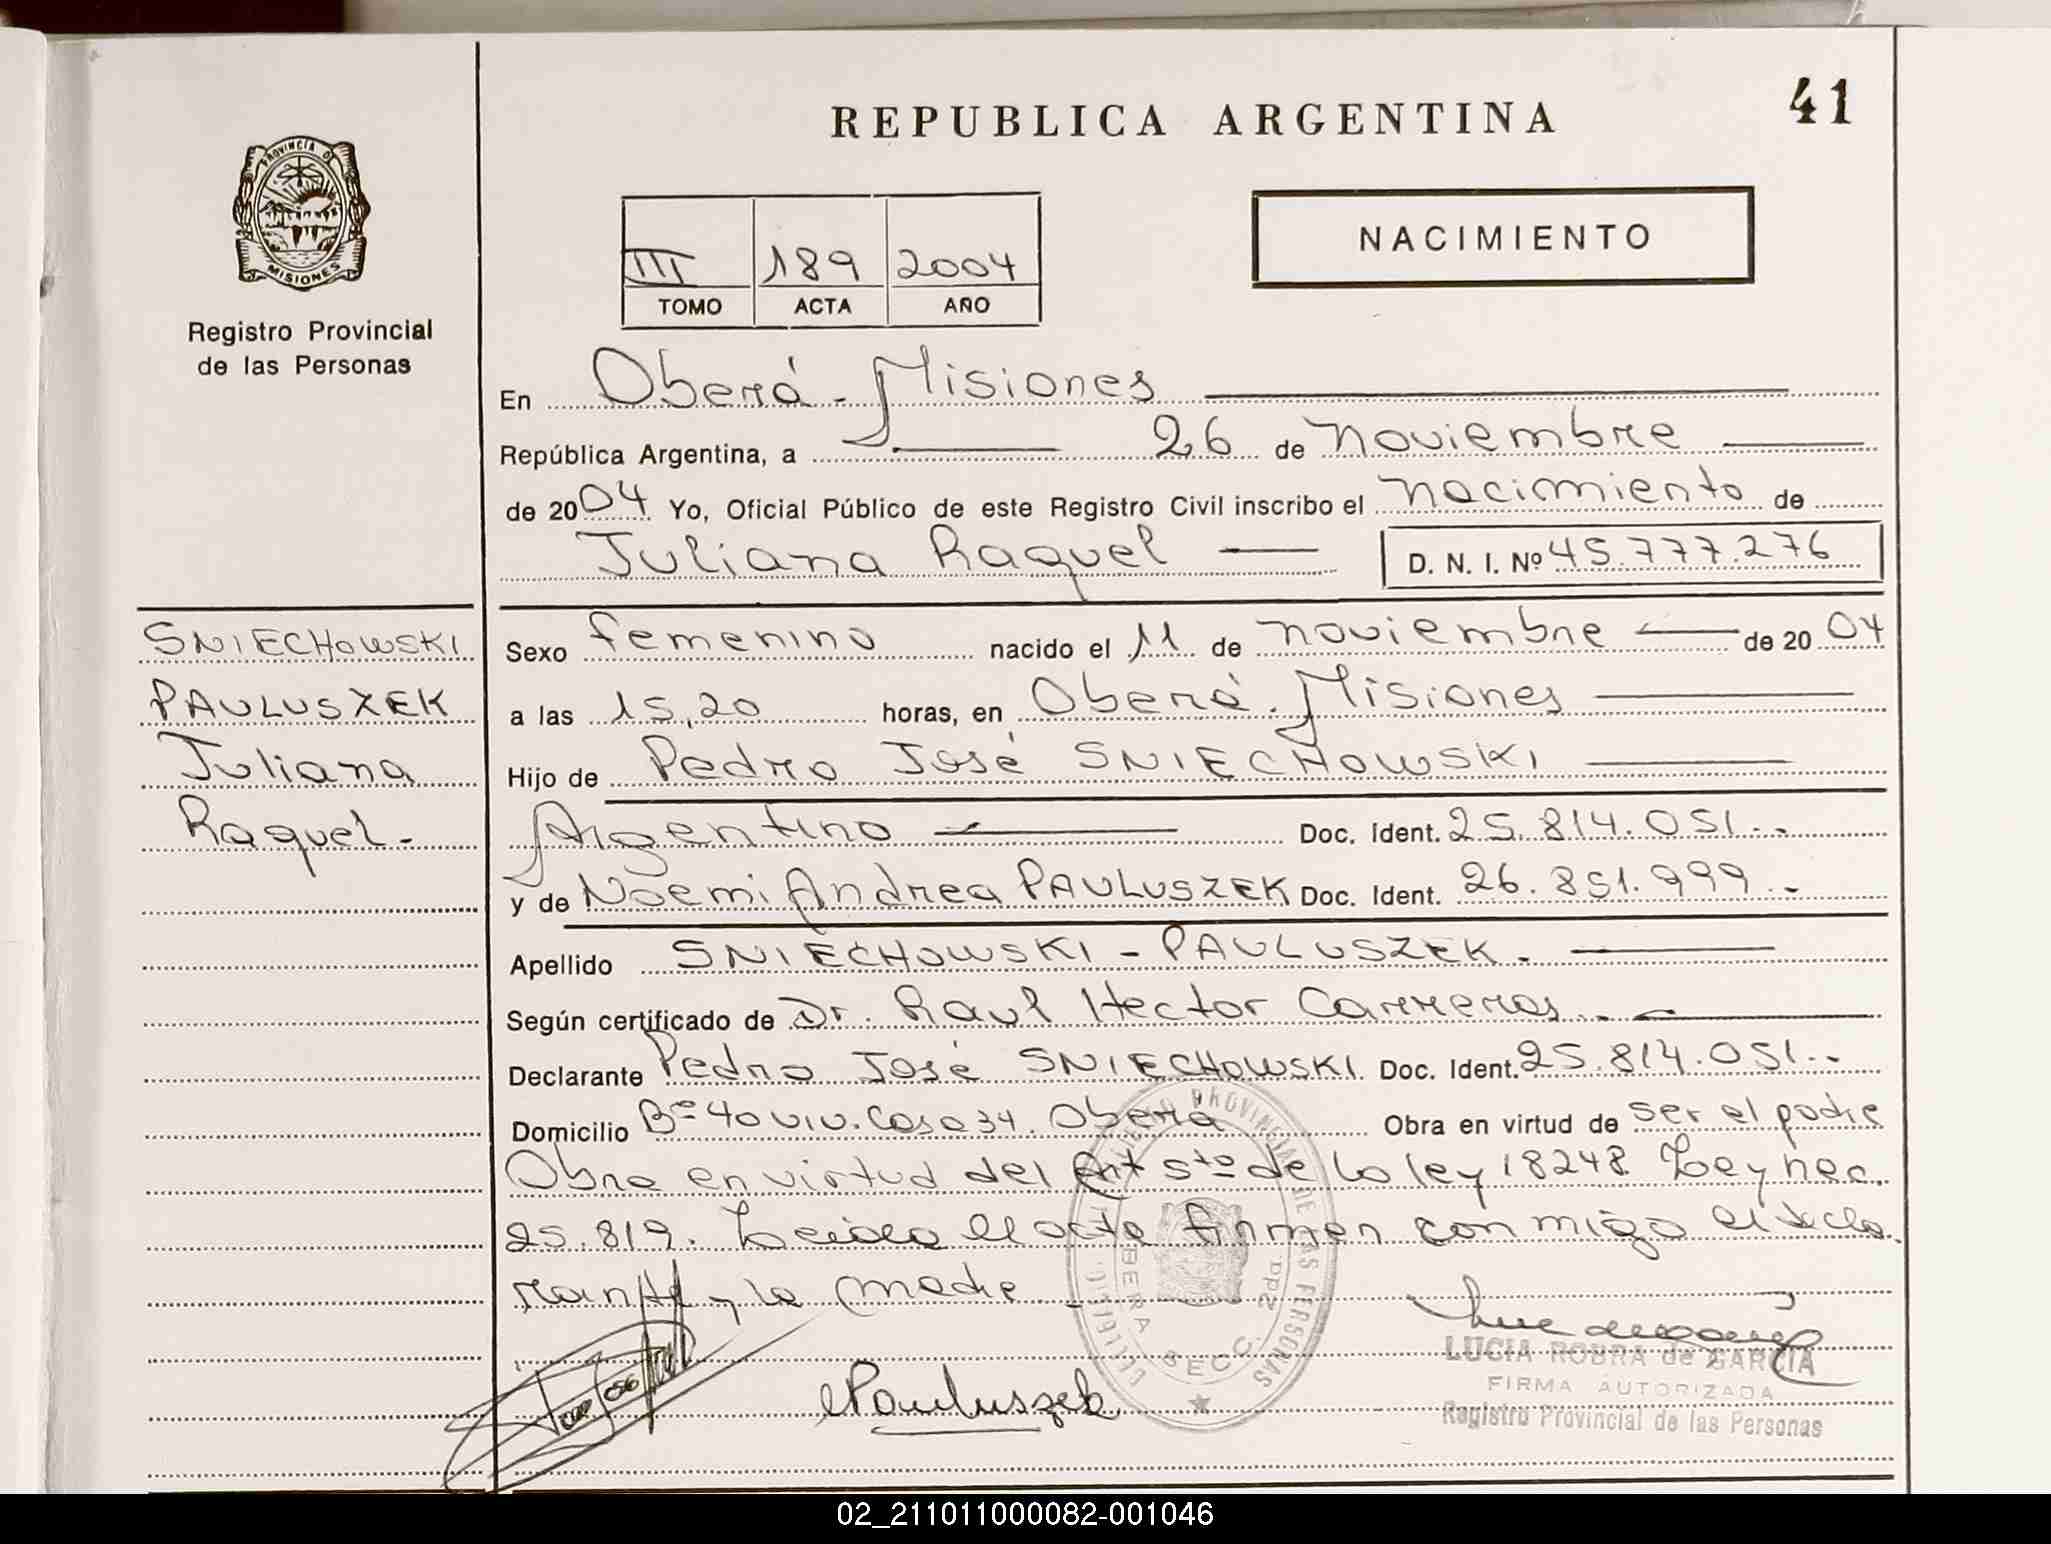 41
REPUBLICA ARGENTINA
PROVINCIA DE
MISIONES
NACIMIENTO
III 189 2004
TOMO ACTA AÑO
Registro Provincial
de las Personas
En Oberá - Misiones
República Argentina, a 26 de noviembre
de 2004 Yo, Oficial Público de este Registro Civil inscribo el nacimiento de
Juliana Raquel D. N. I. Nº 45.777.276
SNIECHOWSKI
PAULUSZEK
Juliana
Raquel.-
Sexo femenino nacido el 11 de noviembre de 2004
a las 15,20 horas, en Oberá. Misiones
Hijo de Pedro José SNIECHOWSKI
Argentino Doc. Ident. 25.814.051.-
y de Noemi Andrea PAULUSZEK Doc. Ident. 26.851.999.-
Apellido SNIECHOWSKI - PAULUSZEK.
Según certificado de Dr. Raul Hector Carreras.
Declarante Pedro José SNIECHOWSKI Doc. Ident. 25.814.051.-
Domicilio Bº 40 viv. Casa 34. Oberá Obra en virtud de ser el padre
Obra en virtud del Art 5to de la ley 18248 Ley nac.
25.819. Leida el acta firman con migo el decla
rante y la madre
REGISTRO PROVINCIAL DE LAS PERSONAS
OBERA SECC. 2da.
Pauluszek
LUCIA ROBRA de GARCIA
FIRMA AUTORIZADA
Registro Provincial de las Personas
02_211011000082-001046